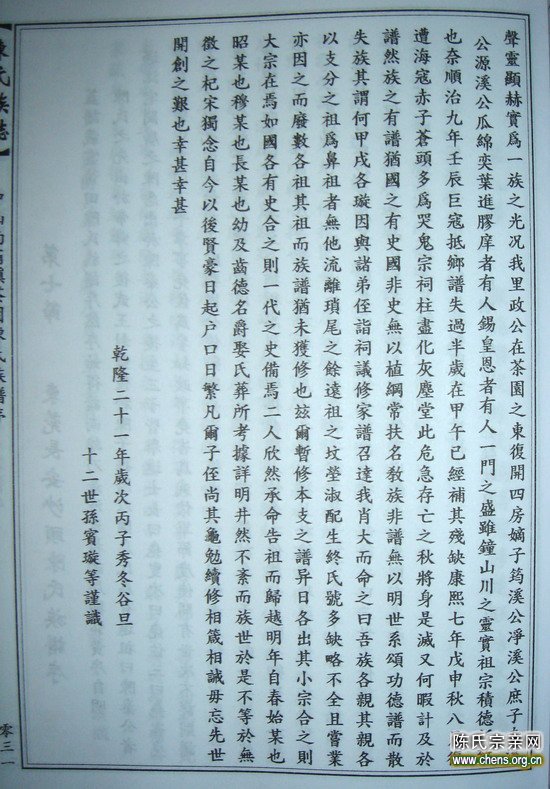 聲靈顯赫實爲一族之光况我里政公在茶園之東復開四房嫡子筠溪公淨溪公庶子
公源溪公瓜綿奕葉進膠庠者有人錫皇恩者有人一門之盛雖鐘山川之靈實祖宗積德
也奈順治九年壬辰巨寇抵鄉譜失過半歲在甲午已經補其殘缺康熙七年戊申秋八
遭海寇赤子蒼頭多爲哭鬼宗祠柱畫化灰塵堂此危急存亡之秋將身是滅又何暇計及於
譜然族之有譜猶國之有史國非史無以植綱常扶名教族非譜無以明世系頌功德譜而散
失族其謂何甲戌各璇因與諸弟侄詣祠議修家譜召達我肖大而命之曰吾族各親其親各
以支分之祖爲鼻祖者無他流離瑣尾之餘遠祖之墳塋淑配生終氏號多缺略不全且嘗業
亦因之而廢數各祖其祖而族譜猶未獲修也玆爾暫修本支之譜异日各出其小宗合之則
大宗在焉如國各有史合之則一代之史備焉二人欣然承命告祖而歸越明年自春始某也
昭某也穆某也長某也幼及齒德名爵娶氏葬所考據詳明井然不紊而族世於是不等於無
徵之杞宋獨念自今以後賢豪日起户口日繁凡爾子侄尚其黽勉續修相箴相誡毋忘先世
開創之艱也幸甚幸甚
乾隆二十一年歲次丙子秀冬谷旦
十二世孫賓璇等謹識
陳氏族誌
零三一
陈氏宗亲网
www.chens.org.cn